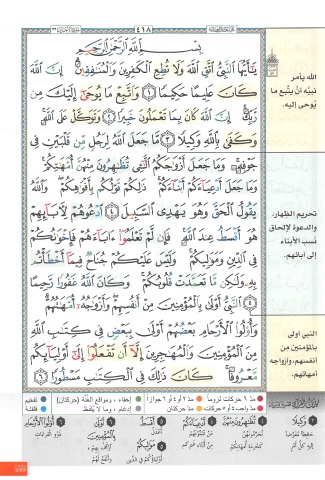 ٤١٨
بِسْمِ اللَّهِ الرَّحْمَٰنِ الرَّحِيمِ
يَٰٓأَيُّهَا النَّبِىُّ اتَّقِ اللَّهَ وَلَا تُطِعِ الْكَٰفِرِينَ وَالْمُنَٰفِقِينَ ۗ إِنَّ اللَّهَ
كَانَ عَلِيمًا حَكِيمًا ١ وَاتَّبِعْ مَا يُوحَىٰٓ إِلَيْكَ مِن
رَّبِّكَ ۚ إِنَّ اللَّهَ كَانَ بِمَا تَعْمَلُونَ خَبِيرًا ٢ وَتَوَكَّلْ عَلَى اللَّهِ ۚ
وَكَفَىٰ بِاللَّهِ وَكِيلًا ٣ مَّا جَعَلَ اللَّهُ لِرَجُلٍ مِّن قَلْبَيْنِ فِى
جَوْفِهِۦ ۚ وَمَا جَعَلَ أَزْوَٰجَكُمُ الَّٰٓـِٔى تُظَٰهِرُونَ مِنْهُنَّ أُمَّهَٰتِكُمْ ۚ
وَمَا جَعَلَ أَدْعِيَآءَكُمْ أَبْنَآءَكُمْ ۚ ذَٰلِكُمْ قَوْلُكُم بِأَفْوَٰهِكُمْ ۖ وَاللَّهُ
يَقُولُ الْحَقَّ وَهُوَ يَهْدِى السَّبِيلَ ٤ ادْعُوهُمْ لِءَابَآئِهِمْ
هُوَ أَقْسَطُ عِندَ اللَّهِ ۚ فَإِن لَّمْ تَعْلَمُوٓا۟ ءَابَآءَهُمْ فَإِخْوَٰنُكُمْ
فِى الدِّينِ وَمَوَٰلِيكُمْ ۚ وَلَيْسَ عَلَيْكُمْ جُنَاحٌ فِيمَآ أَخْطَأْتُم
بِهِۦ وَلَٰكِن مَّا تَعَمَّدَتْ قُلُوبُكُمْ ۚ وَكَانَ اللَّهُ غَفُورًا رَّحِيمًا
٥ النَّبِىُّ أَوْلَىٰ بِالْمُؤْمِنِينَ مِنْ أَنفُسِهِمْ ۖ وَأَزْوَٰجُهُۥٓ أُمَّهَٰتُهُمْ ۗ
وَأُو۟لُوا۟ الْأَرْحَامِ بَعْضُهُمْ أَوْلَىٰ بِبَعْضٍ فِى كِتَٰبِ اللَّهِ
مِنَ الْمُؤْمِنِينَ وَالْمُهَٰجِرِينَ إِلَّآ أَن تَفْعَلُوٓا۟ إِلَىٰٓ أَوْلِيَآئِكُم
مَّعْرُوفًا ۚ كَانَ ذَٰلِكَ فِى الْكِتَٰبِ مَسْطُورًا ٦
الله يأمر
نبيّه أن يتّبع ما
يوحى إليه.
تحريم الظهار،
والدعوة لإلحاق
نسب الأبناء
إلى آبائهم.
النبي أولى
بالمؤمنين من
أنفسهم، وأزواجه
أمهاتهم.
مدّ ٦ حركات لزوماً
مدّ ٢ أو ٤ أو ٦ جوازاً
إخفاء، ومواقع الغنّة (حركتان)
تفخيم
مدّ واجب ٤ أو ٥ حركات
مدّ حركتان
إدغام، وما لا يُلفظ
قلقلة